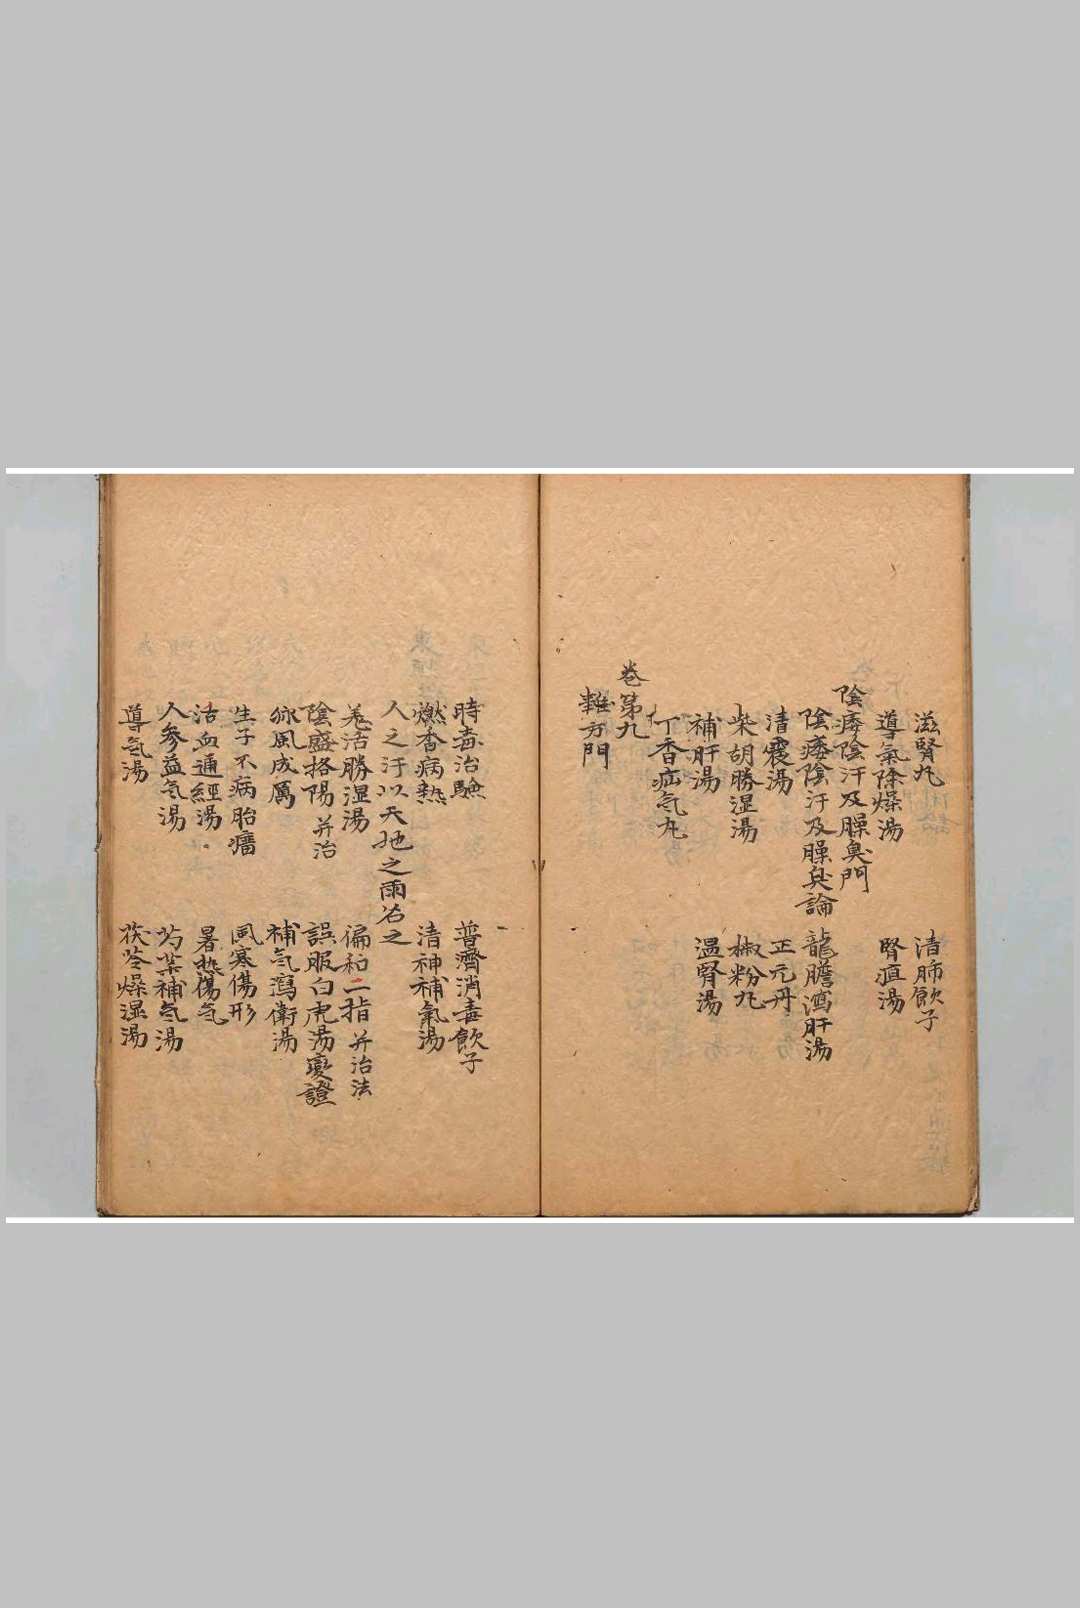 滋腎丸 清肺飲子
導氣除燥湯 腎疸湯
陰痿陰汗及臊臭門
陰痿陰汗及臊臭論 龍膽瀉肝湯
清震湯 正元丹
柴胡勝湿湯 椒粉丸
補肝湯 温腎湯
丁香疝気丸
卷第九
雜方門
時毒治驗 普濟消毒飲子
燃香病熱 清神補氣湯
人之汗以天地之雨名之
羌活勝湿湯 偏和二指并治法
陰盛格陽并治 誤服白虎湯變證
脉風成厲 補気瀉衛湯
生子不病胎癗 風寒傷形
活血通經湯 暑热傷気
人参益気湯 芍藥補気湯
導気湯 茯苓燥湿湯